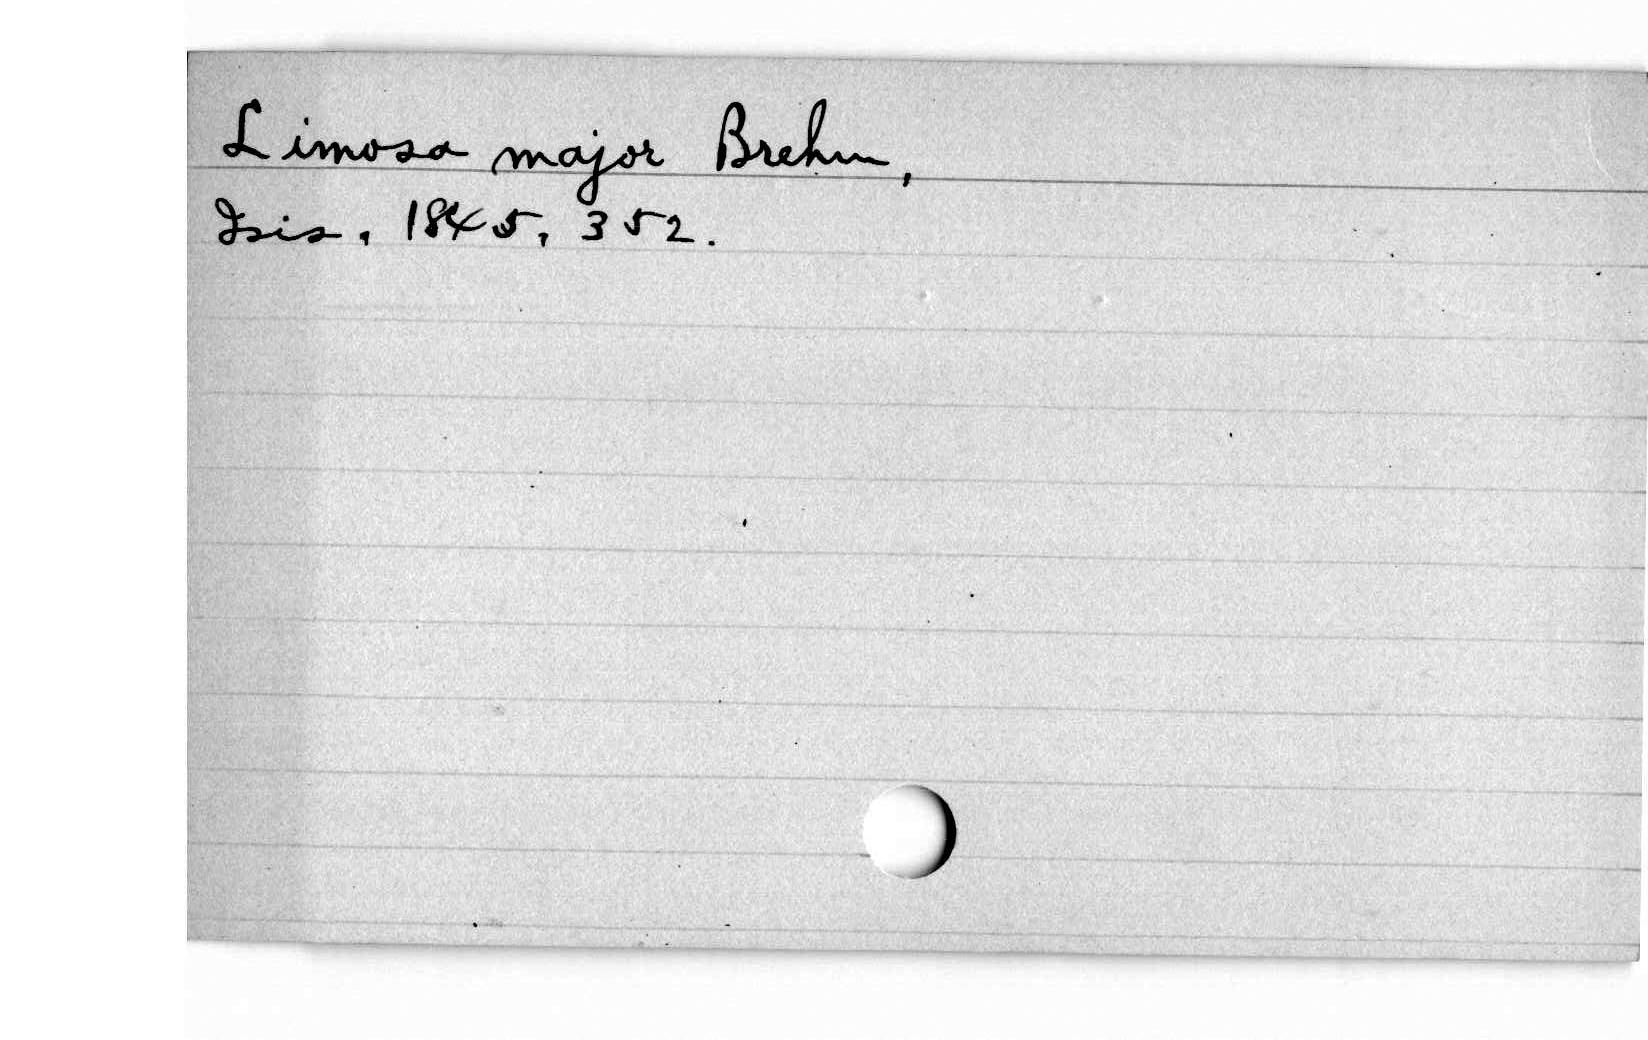 Limosa major Brehm,
Isis, 1845, 352.